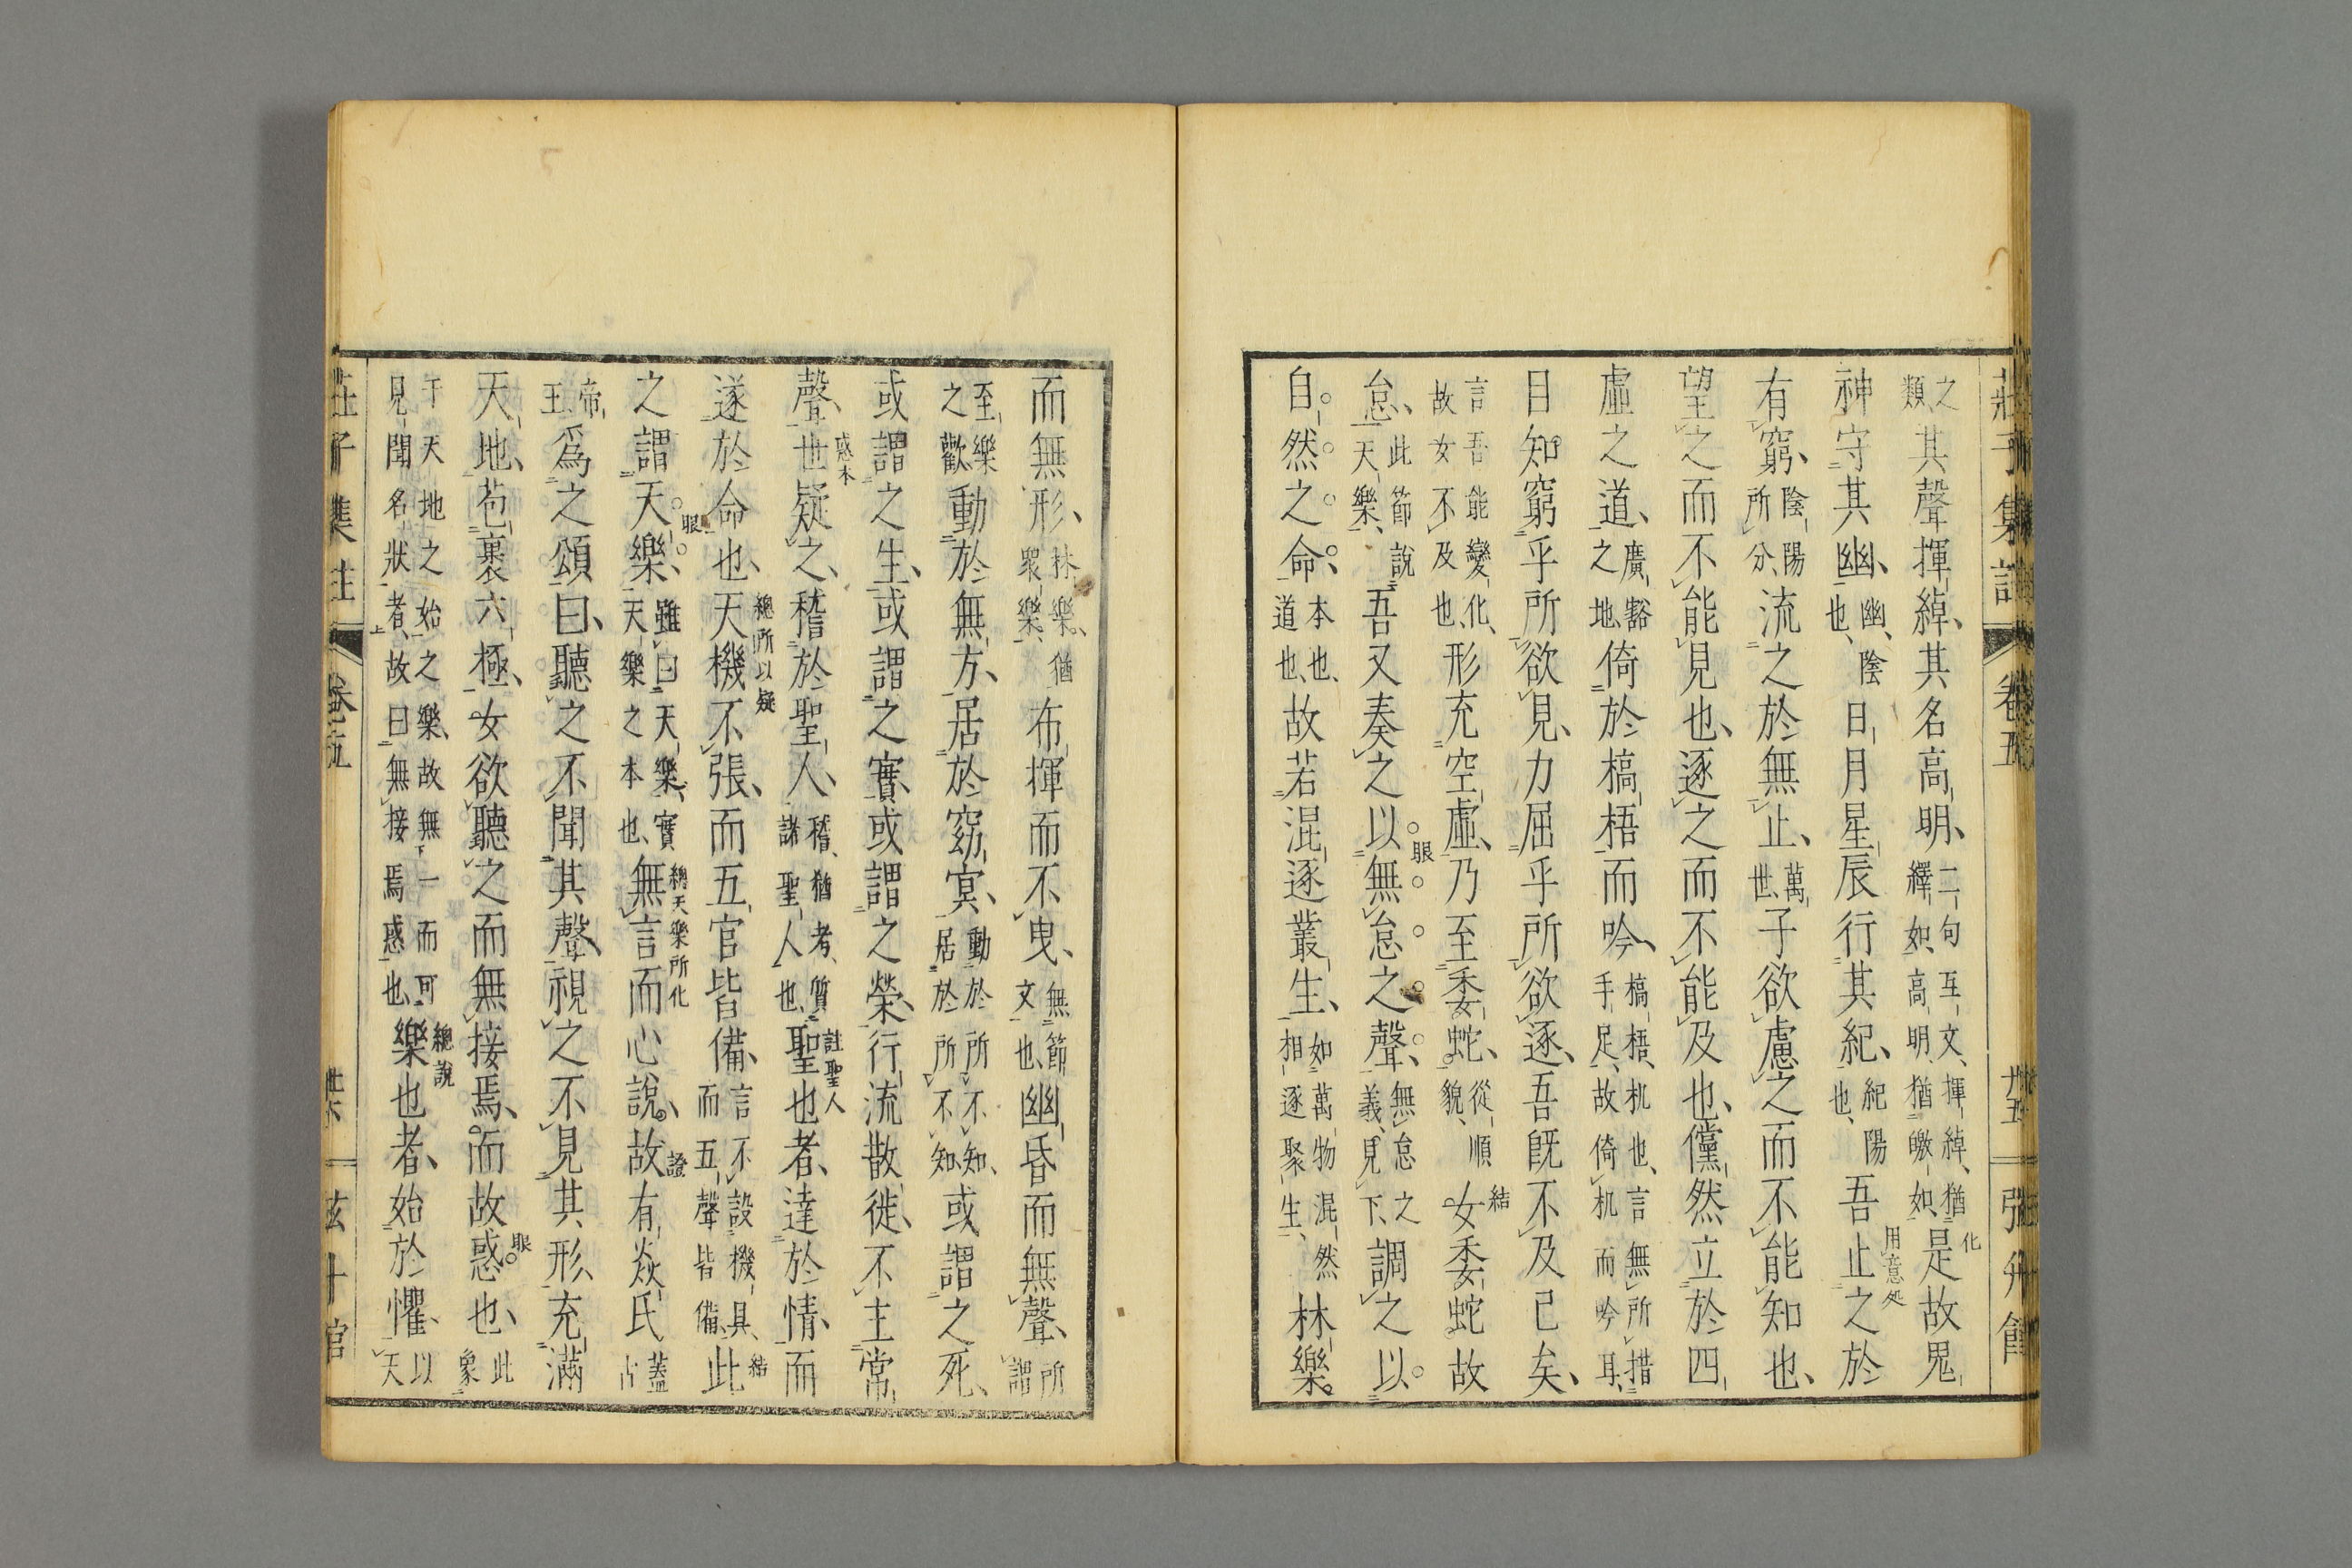 莊子集註 卷五 廿五
之類、其聲揮綽、其名高明、二句互文、揮綽、猶繹如、高明、猶皦如、是故鬼
神守其幽、幽、陰也、日月星辰行其紀、紀陽也、吾止之於
有窮、陰陽所分、流之於無止、萬世、子欲慮之而不能知也、
望之而不能見也、逐之而不能及也、儻然立於四
虛之道、廣豁之地、倚於槁梧而吟、槁梧、机也、言無所措手足、故倚机而吟耳、
目知窮乎所欲見、力屈乎所欲逐、吾既不及已矣、
言吾能變化、故女不及也、形充空虛、乃至委蛇、從順貌、女委蛇故
怠、此節說天樂、吾又奏之以無怠之聲、無怠之義、見下、調之以
自然之命、本也、道也、故若混逐叢生、如萬物混然相逐聚生、林樂
而無形、林樂、猶衆樂、布揮而不曳、無節文也、幽昏而無聲、所謂
至樂之歡、動於無方、居於窈冥、動於所不知、居於所不知、或謂之死、
或謂之生、或謂之實、或謂之榮、行流散徙、不主常
聲、世疑之、稽於聖人、稽、猶考、質諸聖人也、聖也者、達於情、而
遂於命也、天機不張、而五官皆備、言不設機具、而五聲皆備、此
之謂天樂、雖曰天樂、實天樂之本也、無言而心說、故有焱氏蓋古
帝王、爲之頌曰、聽之不聞其聲、視之不見其形、充滿
天地、苞裹六極、女欲聽之而無接焉、而故惑也、此象
于天地之始之樂、故無一而可見聞名狀者、故曰無接焉惑也、樂也者、始於懼、以天
化
用意処
結
眼
惑本
總所以疑
註聖人
結
眼
總天樂所化
證
眼
總說